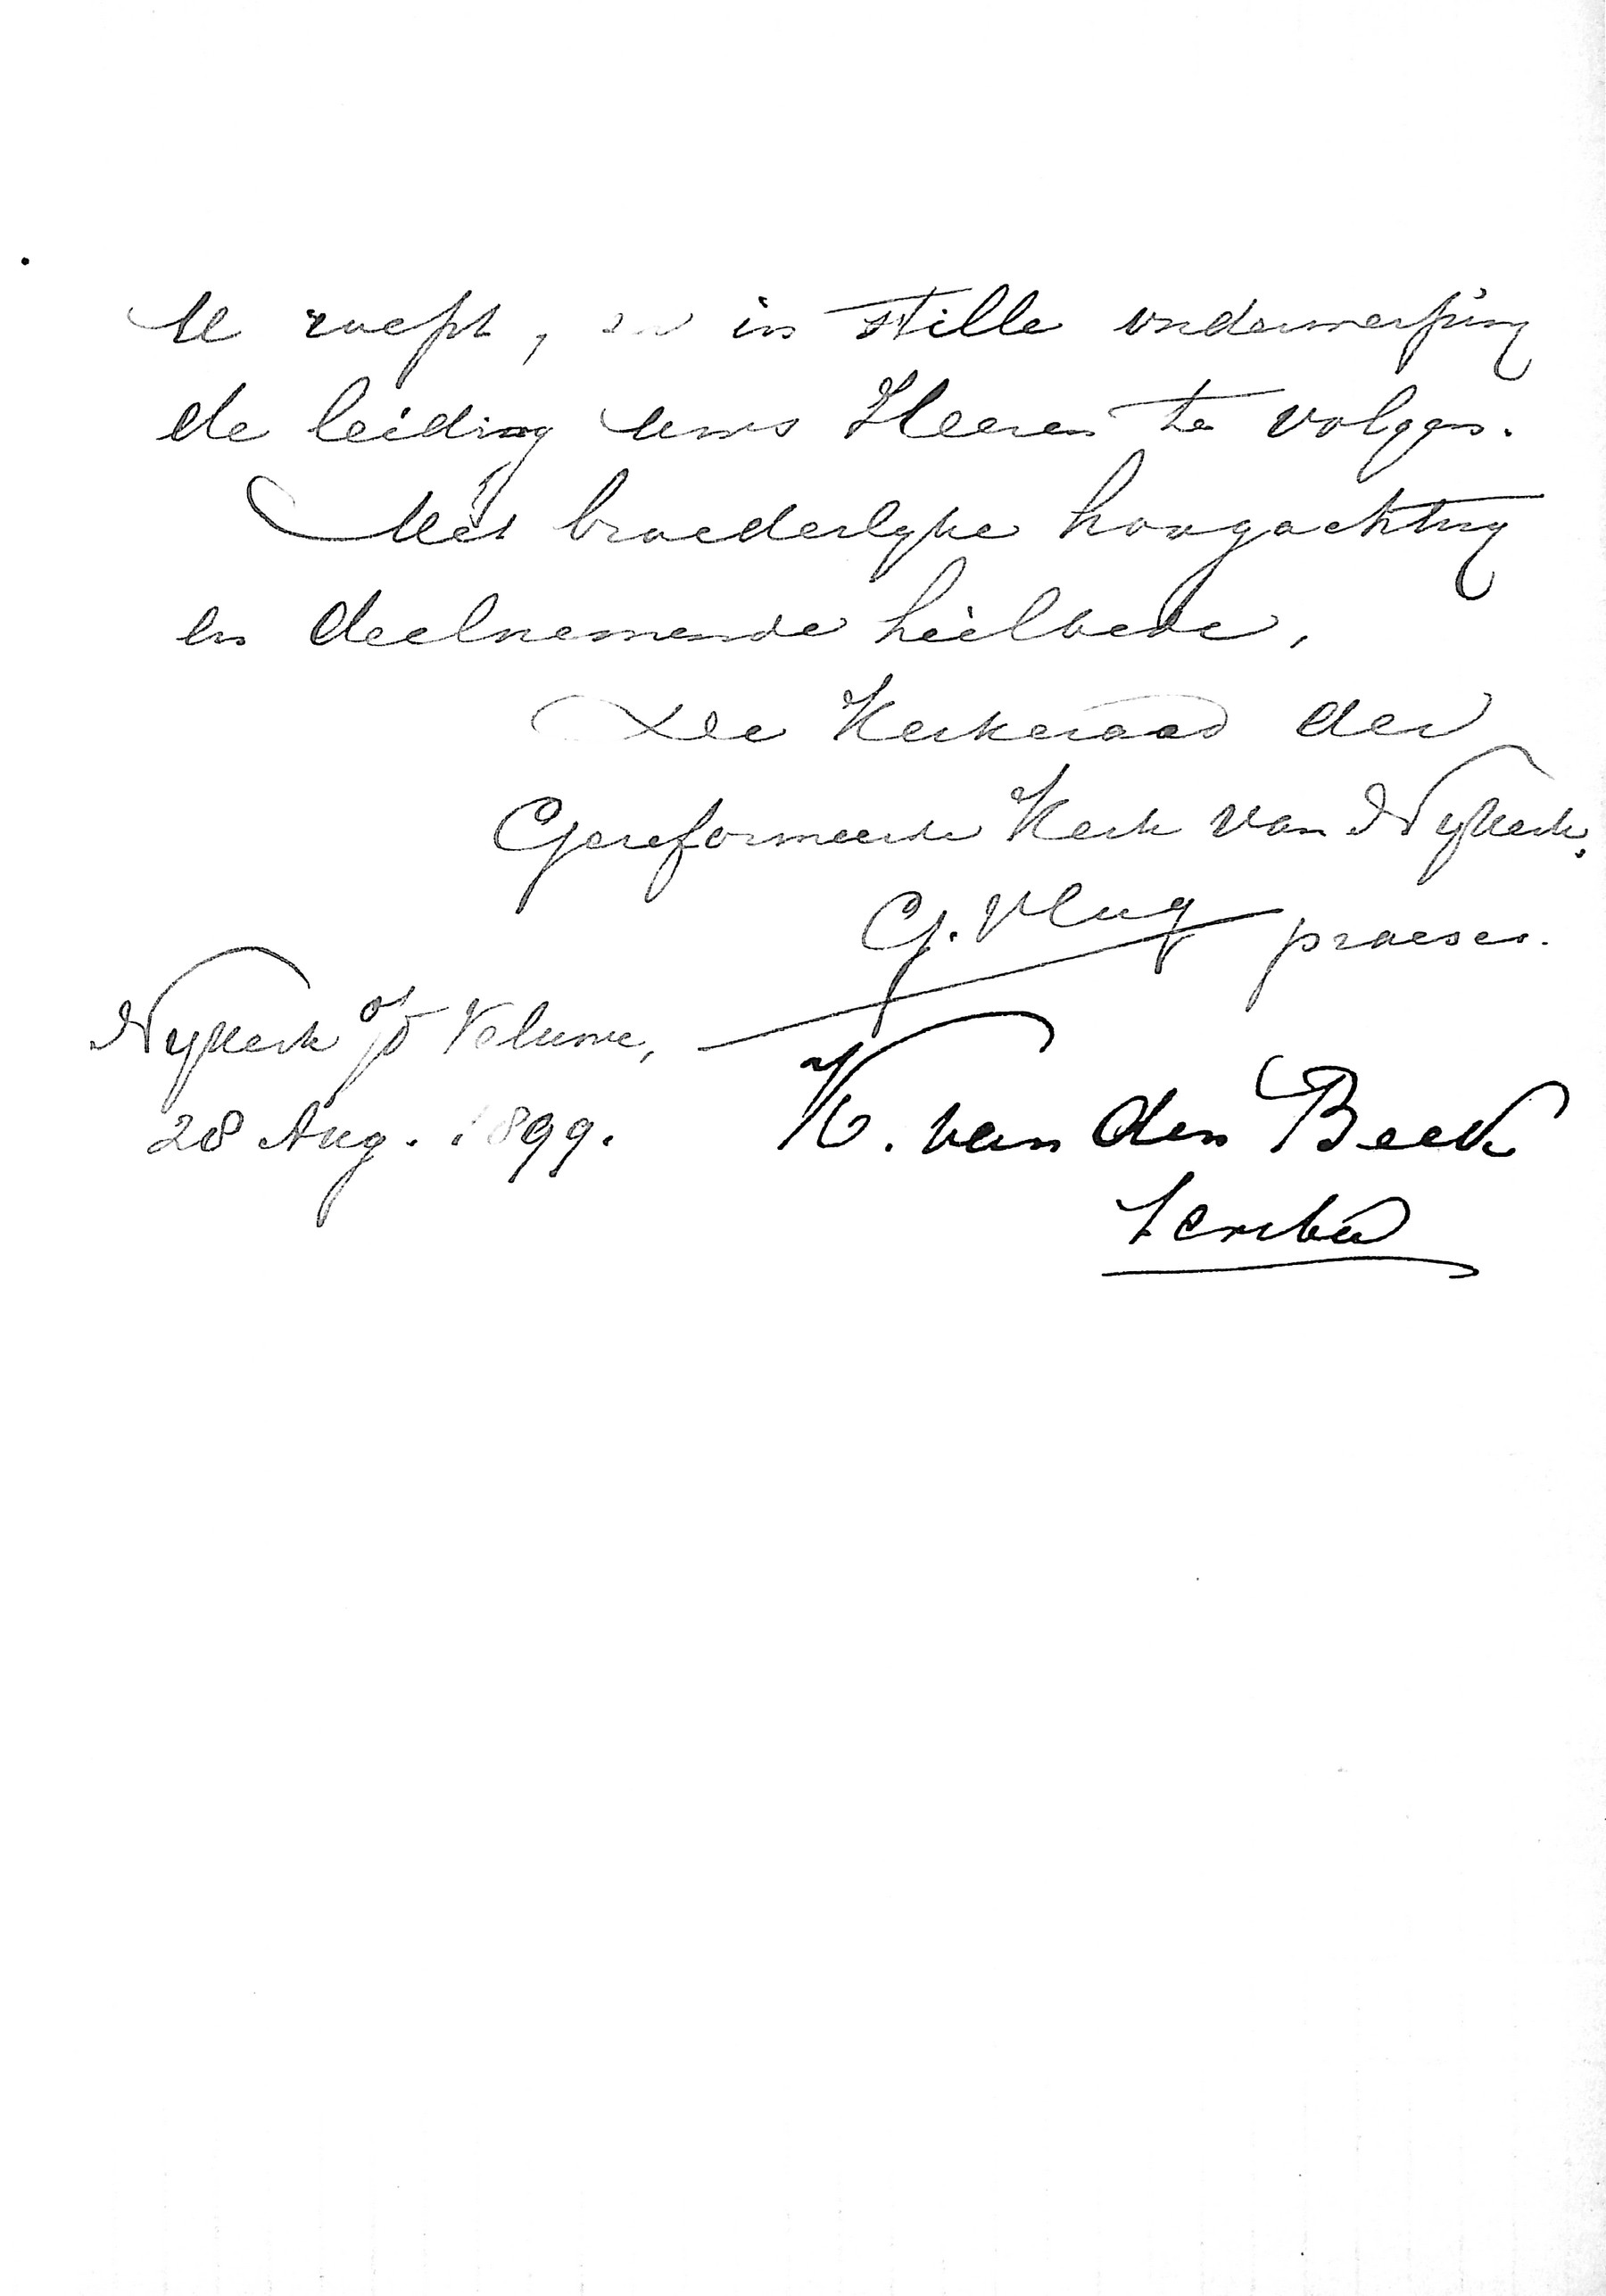 U roept, en in stille onderwerping
de leiding uws Heeren te volgen.
Met broederlyke hoogachting
en deelnemende heilbede,
De Kerkeraad der
Gereformeerde Kerk van Nykerk.
G. Vlug praeses.
Nykerk o/d Veluwe,
28 Aug. 1899.
K. van den Beek
Scriba